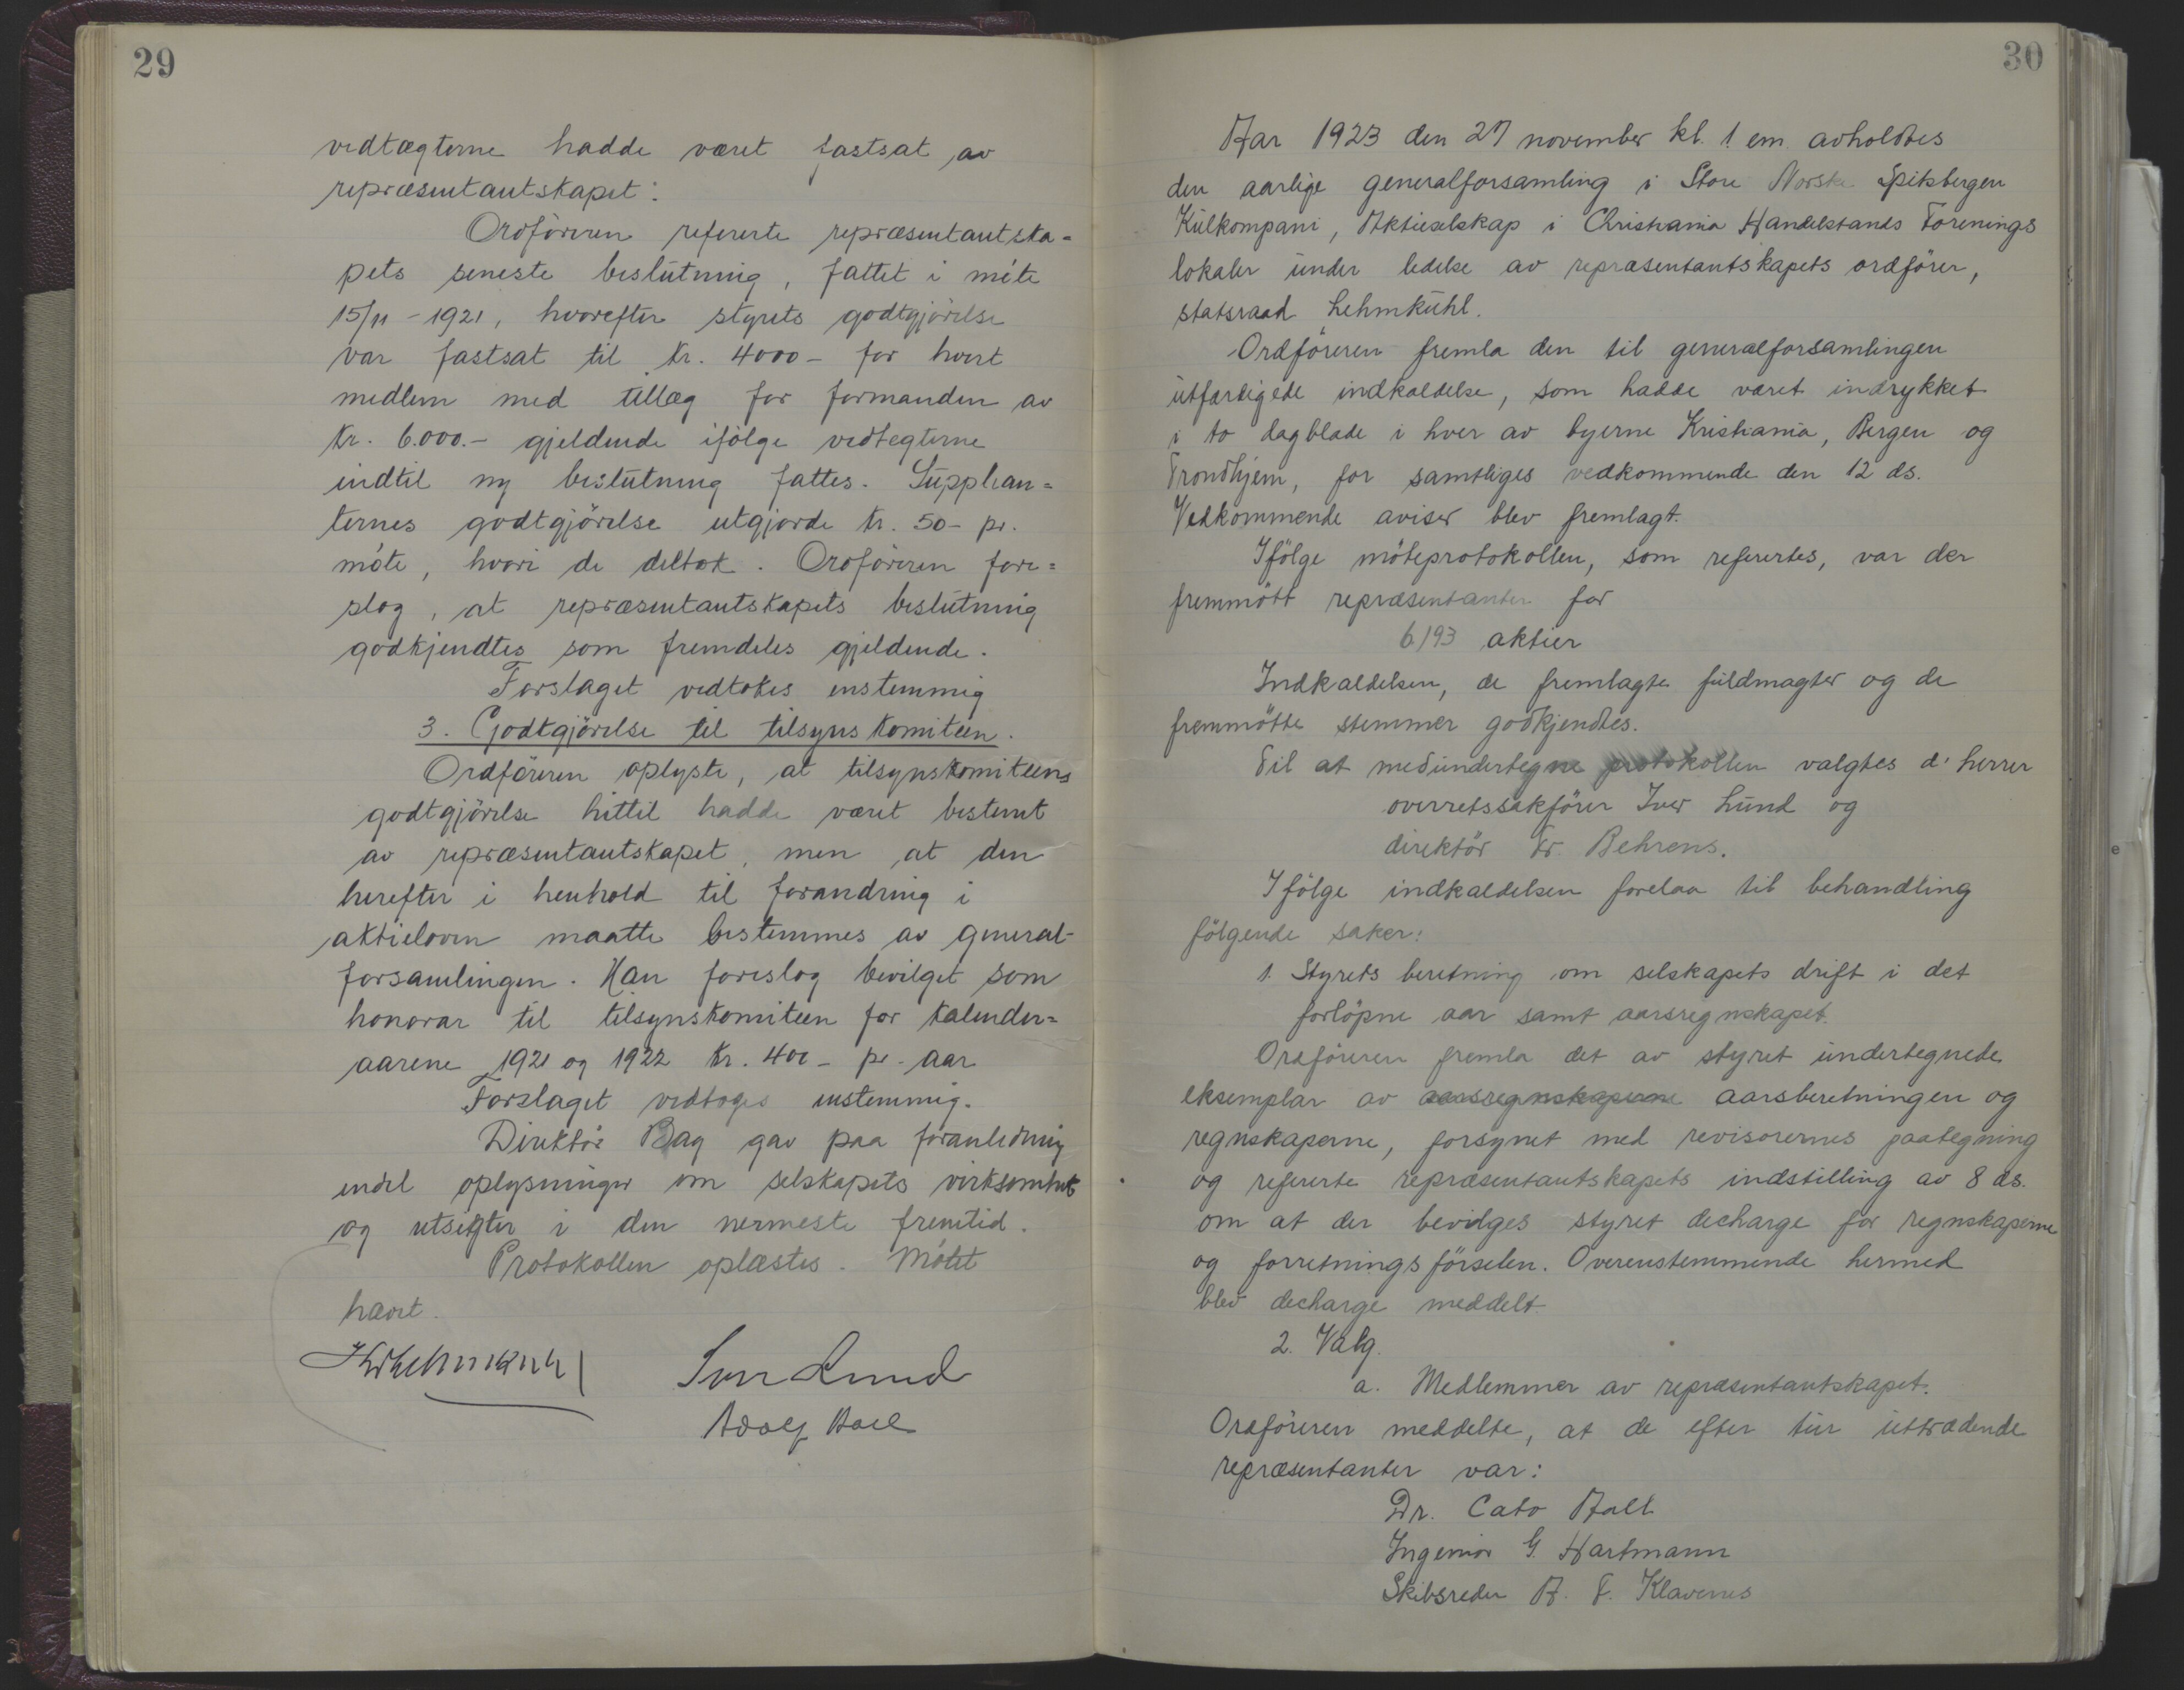 29
vedtægterne hadde været fastsat av
repræsentantskapet:
Ordføreren refererte repræsentantska=
pets seneste beslutning, fattet i møte
15/11 - 1921, hvorefter styrets godtgjörelse
var fastsat til kr. 4000- for hvert
medlem med tillæg for formanden av
kr. 6.000.- gjeldende ifölge vedtegterne
indtil ny beslutning fattes. Supplean=
ternes godtgjörelse utgjorde kr. 50- pr.
möte, hvori de deltok. Ordföreren fore=
slog, at repræsentantskapets beslutning
godkjendtes som fremdeles gjeldende.
Forslaget vedtokes enstemmig
3. Godtgjörelse til tilsynskomiteen.
Ordföreren oplyste, at tilsynskomiteens
godtgjörelse hittil hadde været bestemt
av repræsentantskapet, men at den
herefter i henhold til forandring i
aktieloven maatte bestemmes av general-
forsamlingen. Han foreslog bevilget som
honorar til tilsynskomiteen for kalender=
aarene 1921 og 1922 kr. 400- pr. aar
Forslaget vedtoges enstemmig.
Direktör Bay gav paa foranledning
endel oplysninger om selskapets virksomhet
og utsigter i den nermeste fremtid.
Protokollen oplæstes. Mötet
hævet.
Kr Lehmkuhl
Iver Lund
Adolf Hoel
30
Aar 1923 den 27 november kl. 1 em. avholdtes
den aarlige generalforsamling i Store Norske Spitsbergen
Kulkompani, Aktieselskap i Christiania Handelstands Forenings
lokaler under ledelse av repræsentantskapets ordförer,
statsraad Lehmkuhl.
Ordföreren fremla den til generalforsamlingen
utfærdigede indkaldelse, som hadde været indrykket
i to dagblade i hver av byerne Kristiania, Bergen og
Trondhjem, for samtliges vedkommende den 12 ds.
Vedkommende aviser blev fremlagt.
Ifölge möteprotokollen, som referertes, var der
fremmött repræsentanter for
6193 aktier
Indkaldelsen, de fremlagte fuldmagter og de
fremmötte stemmer godkjendtes.
Til at medundertegne protokollen valgtes d'herrer
overretssakförer Iver Lund og
direktör Fr. Behrens.
Ifölge indkaldelsen forelaa til behandling
fölgende saker:
1. Styrets beretning om selskapets drift i det
forlöpne aar samt aarsregnskapet.
Ordföreren fremla det av styret undertegnede
eksemplar av aarsregnskaperne aarsberetningen og
regnskaperne, forsynet med revisorernes paategning
og refererte repræsentantskapets indstilling av 8 ds.
om at der bevilges styret decharge for regnskaperne
og forretningsförselen. Overenstemmende hermed
blev decharge meddelt.
2. Valg.
a. Medlemmer av repræsentantskapet.
Ordföreren meddelte, at de efter tur uttrædende
repræsentanter var:
Dr. Cato Aall
Ingeniör G. Hartmann
Skibsreder A. F. Klavenes